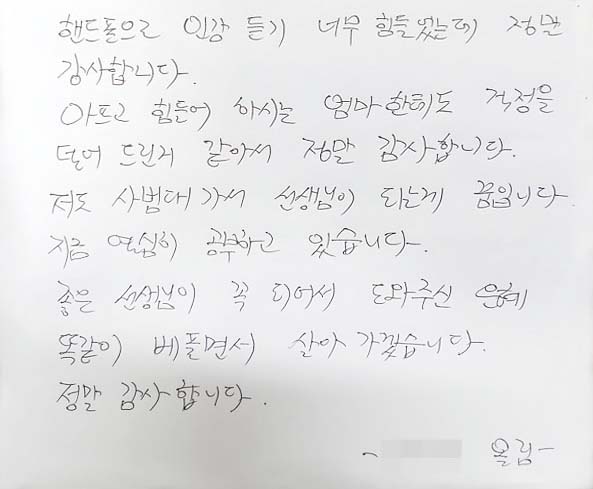 핸드폰으로 인강 듣기 너무 힘들었는데 정말
감사합니다.
아프고 힘들어 하시는 엄마한테도 걱정을
덜어 드린거 같아서 정말 감사합니다.
저도 사범대 가서 선생님이 되는게 꿈입니다
지금 열심히 공부하고 있습니다.
좋은 선생님이 꼭 되어서 도와주신 은혜
똑같이 베플면서 살아 가겠습니다.
정말 감사합니다.
- 올림-